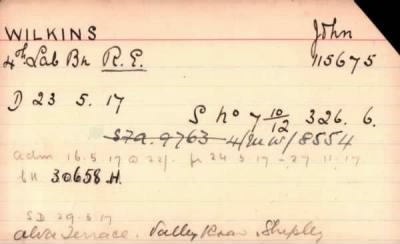 WILKINS John
4th Lab Bn R.E. 115675
D 23 5. 17
S No 7 10/12 326. 6.
57a. 9763 4/MW/8554
adm 16.5.17 @ 22/- fr 24 5 17 - 27.11.17
30658 H.
SD 29.5.17
Alva Terrace. Valley Road Shipley